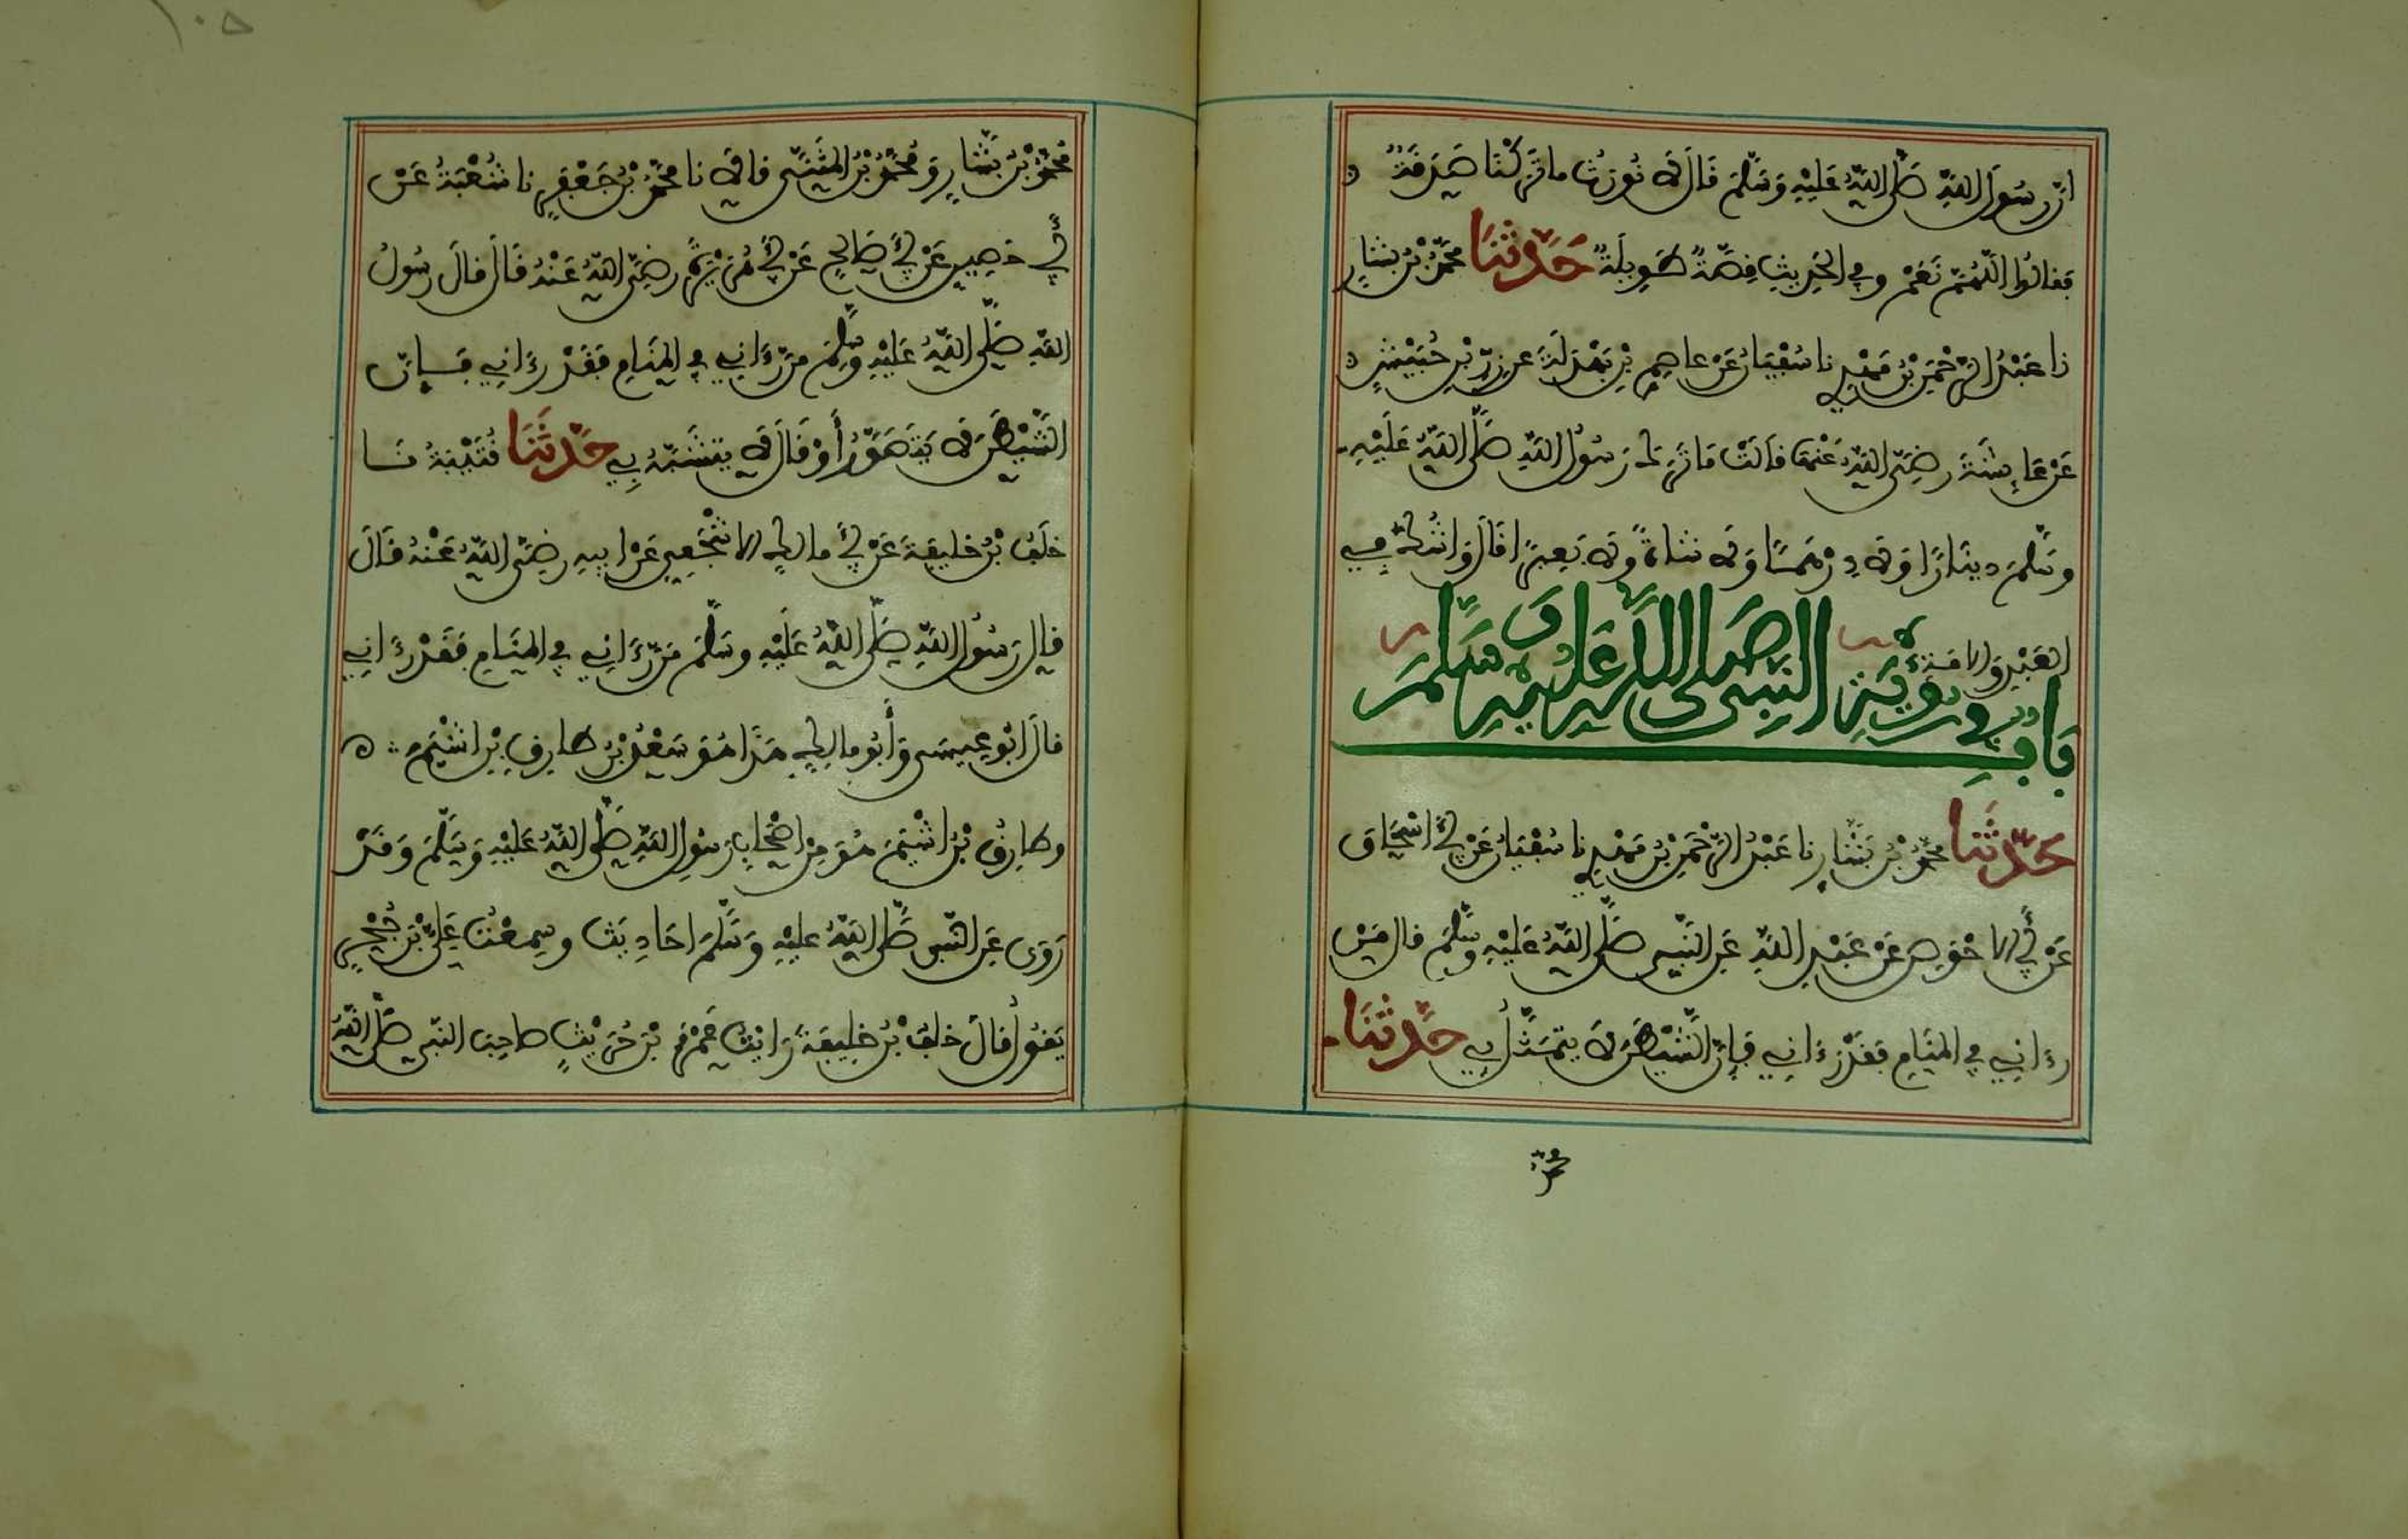 ان رسول الله صلى الله عليه وسلم قال لا نورث ما تركنا صدقة
فقالوا اللهم نعم وفي الحديث قصة طويلة حدثنا محمد بن بشار
نا عبد الرحمن بن مهدي نا سفيان عن عاصم بن بهدلة عن زر بن حبيش
عن عايشة رضي الله عنها قالت ما ترك رسول الله صلى الله عليه
وسلم دينارا ولا درهما ولا شاة ولا بعيرا قال واشك في
العبد والامة
باب في رؤية النبي صلى الله عليه وسلم
حدثنا محمد بن بشار نا عبد الرحمن بن مهدي نا سفيان عن أبي اسحاق
عن أبي الاحوص عن عبد الله عن النبي صلى الله عليه وسلم قال من
رءاني في المنام فقد رءاني فإن الشيطن لا يتمثل بي حدثنا
محمد
١٠٥
محمد بن بشار ومحمد بن المثنى قالا نا محمد بن جعفر نا شعبة عن
أبي حصين عن أبي صالح عن أبي هريرة رضي الله عنه قال قال رسول
الله صلى الله عليه وسلم من رءاني في المنام فقد رءاني فإن
الشيطن لا يتصور أو قال لا يتشبه بي حدثنا قتيبة نا
خلف بن خليفة عن أبي مالك الاشجعي عن ابيه رضي الله عنه قال
قال رسول الله صلى الله عليه وسلم من رءاني في المنام فقد رءاني
قال ابو عيسى وأبو مالك هذا هو سعد بن طارق بن اشيم
وطارق بن اشيم هو من اصحاب رسول الله صلى الله عليه وسلم وقد
روى عن النبي صلى الله عليه وسلم احاديث وسمعت علي بن حجر
يقول قال خلف بن خليفة رايت عمرو بن حريث صاحب النبي صلى الله